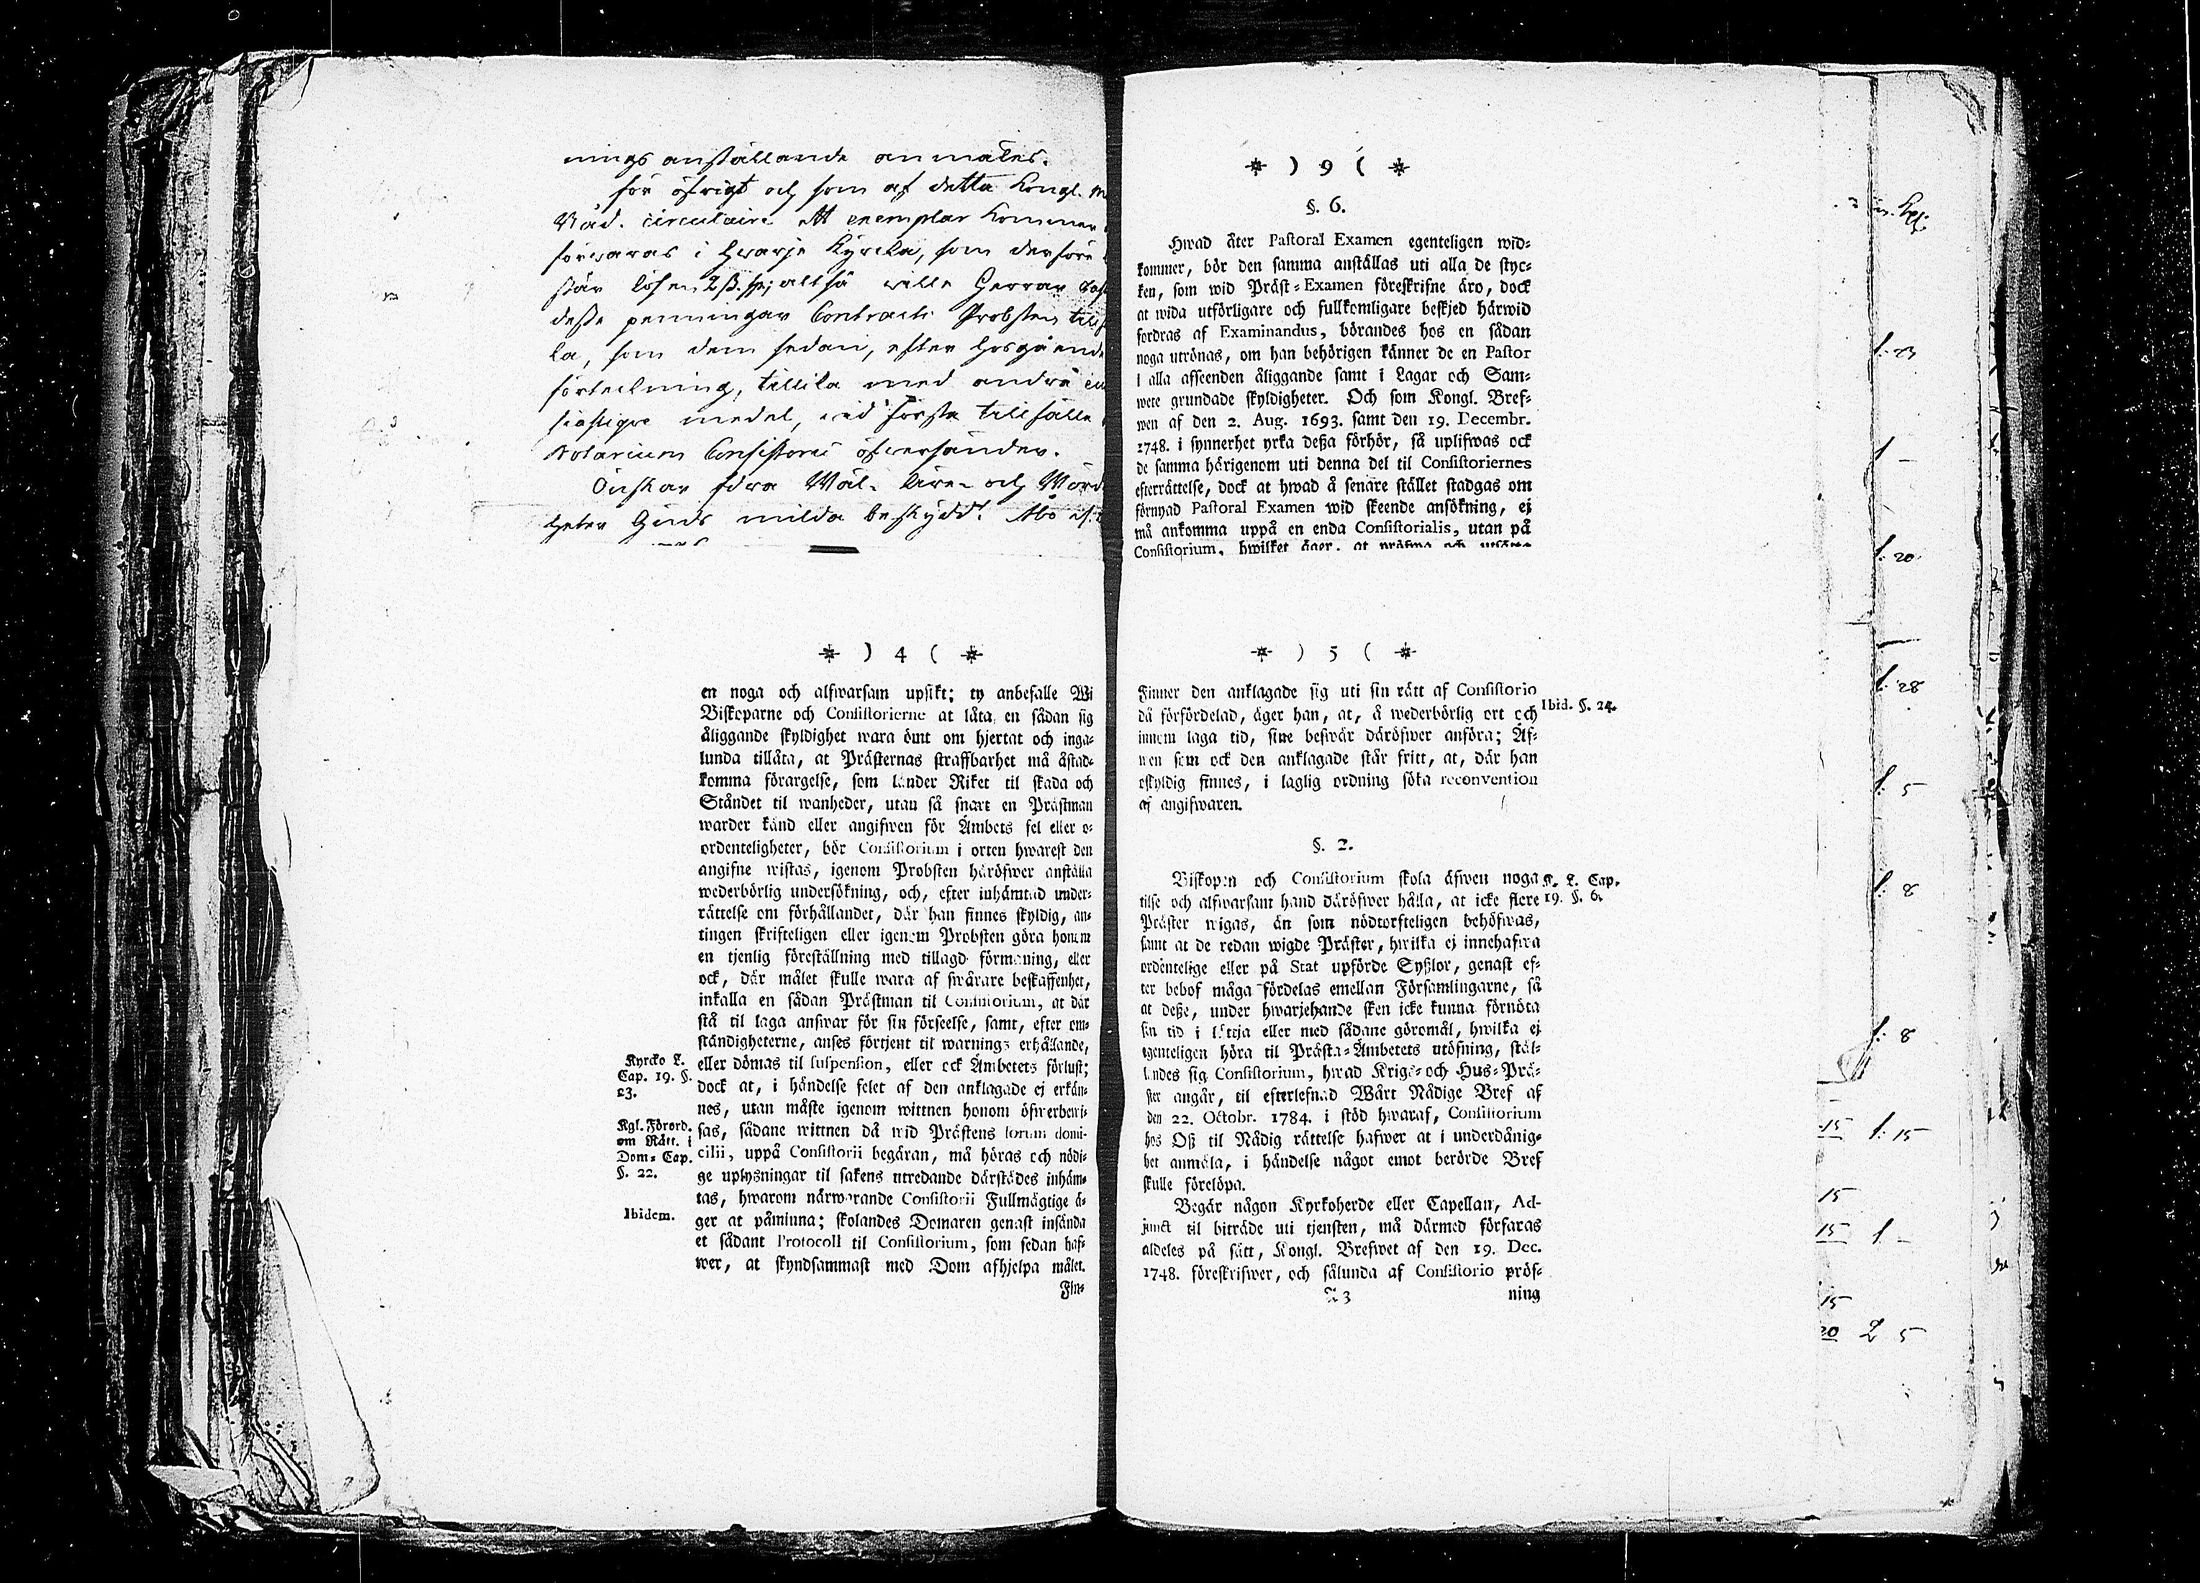 nings anställande anmäles.
för öfrigt och som af detta Kongl.
Nåd. circulaire Ett exemplar kommer
förwaras i hwarje Kyrcka, som derföre
lösen 2 ß. altså wille Herrar
desse penningar Contracts Probsten
la, som dem sedan, efter hosgående
förteckning, tillika med andre
medel, wid första tillfälle
Notarium Consistorii öfwersänder.
Önskar Wäl- Äre- och
heter Guds milda beskydd. Åbo
* ) 4 ( *
en noga och alfwarsam upsikt; ty anbefalle Wi
Biskoparne och Consistorierne at låta en sådan sig
åliggande skyldighet wara ömt om hjertat och inga-
lunda tillåta, at Prästernas straffbarhet må åstad-
komma förargelse, som länder Riket til skada och
Ståndet til wanheder, utan så snart en Prästman
warder känd eller angifwen för Ämbets fel eller o-
ordenteligheter, bör Consistorium i orten hwarest den
angifne wistas, igenom Probsten häröfwer anställa
wederbörlig undersökning, och, efter inhämtad under-
rättelse om förhållandet, där han finnes skyldig, an-
tingen skrifteligen eller igenom Probsten göra honom
en tjenlig föreställning med tillagd förmaning, eller
ock, där målet skulle wara af swårare beskaffenhet,
inkalla en sådan Prästman til Consistorium, at där
stå til laga answar för sin förseelse, samt, efter om-
ständigheterne, anses förtjent til warnings erhållande,
eller dömas til suspension, eller ock Ämbetets förlust;
dock at, i händelse felet af den anklagade ej erkän-
nes, utan måste igenom wittnen honom öfwerbewi-
sas, sådane wittnen då wid Prästens forum domi-
cilii, uppå Consistorii begäran, må höras och nödi-
ge uplysningar til sakens utredande därstädes inhäm-
tas, hwarom närwarande Consistorii Fullmägtige ä-
ger at påminna; skolandes Domaren genast insända
et sådant Protocoll til Consistorium, som sedan haf-
wer, at skyndsammast med Dom afhjelpa målet.
Fin-
Kyrcko L.
Cap. 19. §.
23.
Kgl. Förord.
om Rätt. i
Dom- Cap.
§. 22.
Ibidem.
* ) 9 ( *
§. 6.
Hwad åter Pastoral Examen egenteligen wid-
kommer, bör den samma anställas uti alla de styc-
ken, som wid Präst-Examen föreskrifne äro, dock
at wida utförligare och fullkomligare beskjed härwid
fordras af Examinandus, börandes hos en sådan
noga utrönas, om han behörigen känner de en Pastor
i alla afseenden åliggande samt i Lagar och Sam-
wete grundade skyldigheter. Och som Kongl. Bref-
wen af den 2. Aug. 1693. samt den 19. Decembr.
1748. i synnerhet yrka deßa förhör, så uplifwas ock
de samma härigenom uti denna del til Consistoriernes
efterrättelse, dock at hwad å senare stället stadgas om
förnyad Pastoral Examen wid skeende ansökning, ej
må ankomma uppå en enda Consistorialis, utan på
Consistorium, hwilket äger, at pröfwa och
* ) 5 ( *
Finner den anklagade sig uti sin rätt af Consistorio
då förfördelad, äger han, at, å wederbörlig ort och
innom laga tid, sine beswär däröfwer anföra; Äf-
wen som ock den anklagade står fritt, at, där han
oskyldig finnes, i laglig ordning söka reconvention
af angifwaren.
Ibid. §. 24.
§. 2.
Biskopen och Consistorium skola äfwen noga
tilse och alfwarsamt hand däröfwer hålla, at icke flere
Präster wigas, än som nödtorfteligen behöfwas,
samt at de redan wigde Präster, hwilka ej innehafwa
ordentelige eller på Stat upförde Syßlor, genast ef-
ter behof måga fördelas emellan Församlingarne, så
at deße, under hwarjehande sken icke kunna förnöta
sin tid i lättja eller med sådane göromål, hwilka ej
egenteligen höra til Prästa-Ämbetets utöfning, stäl-
landes sig Consistorium, hwad Krigs- och Hus-Prä-
ster angår, til efterlefnad Wårt Nådige Bref af
den 22. Octobr. 1784. i stöd hwaraf, Consistorium
hos Oß til Nådig rättelse hafwer at i underdånig-
het anmäla, i händelse något emot berörde Bref
skulle förelöpa.
Begär någon Kyrkoherde eller Capellan, Ad-
junct til biträde uti tjensten, må därmed förfaras
aldeles på sätt, Kongl. Brefwet af den 19. Dec.
1748. föreskrifwer, och sålunda af Consistorio pröf-
A 3 ning
K. L. Cap.
19. §. 6.
1: 23
1 –
1: 20
1: 28
1: 5
1: 8
1: 8
15 1: 15
15
15 1 –
15
20 2 5